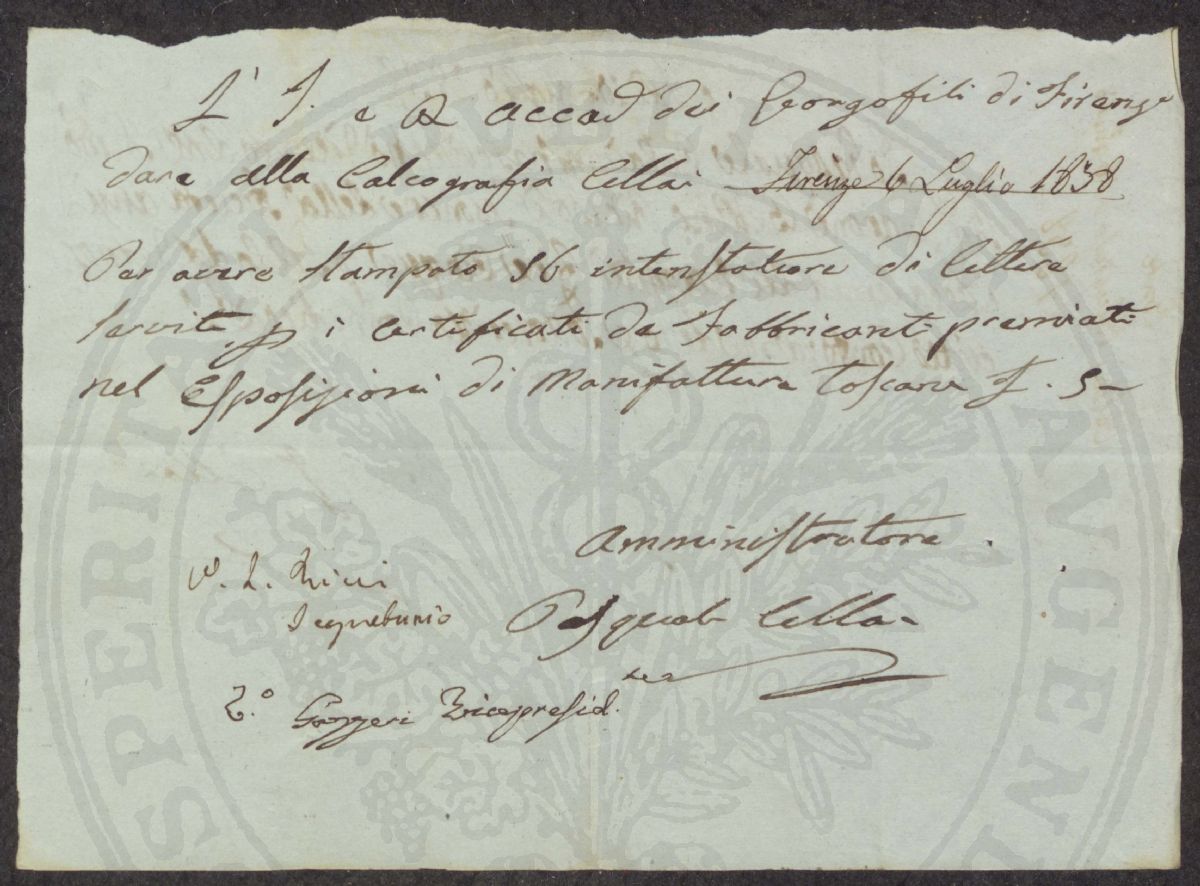 L' I. e R Accad dei Georgofili di Firenze
Dare alla Calcografia Cellai Firenze 6 Luglio 1838
Per avere Stampato 56 intenstature di lettere
servite p i certificati da Fabbricanti premiati
nel Esposizioni di Manifattura Toscana £. 5-
Amministratore
Pasquale Cellai
V. L. Ricci
Segretario
V.° Gazzeri Vicepresid.te
PROSPERITATI PUBLICAE AVGENDAE